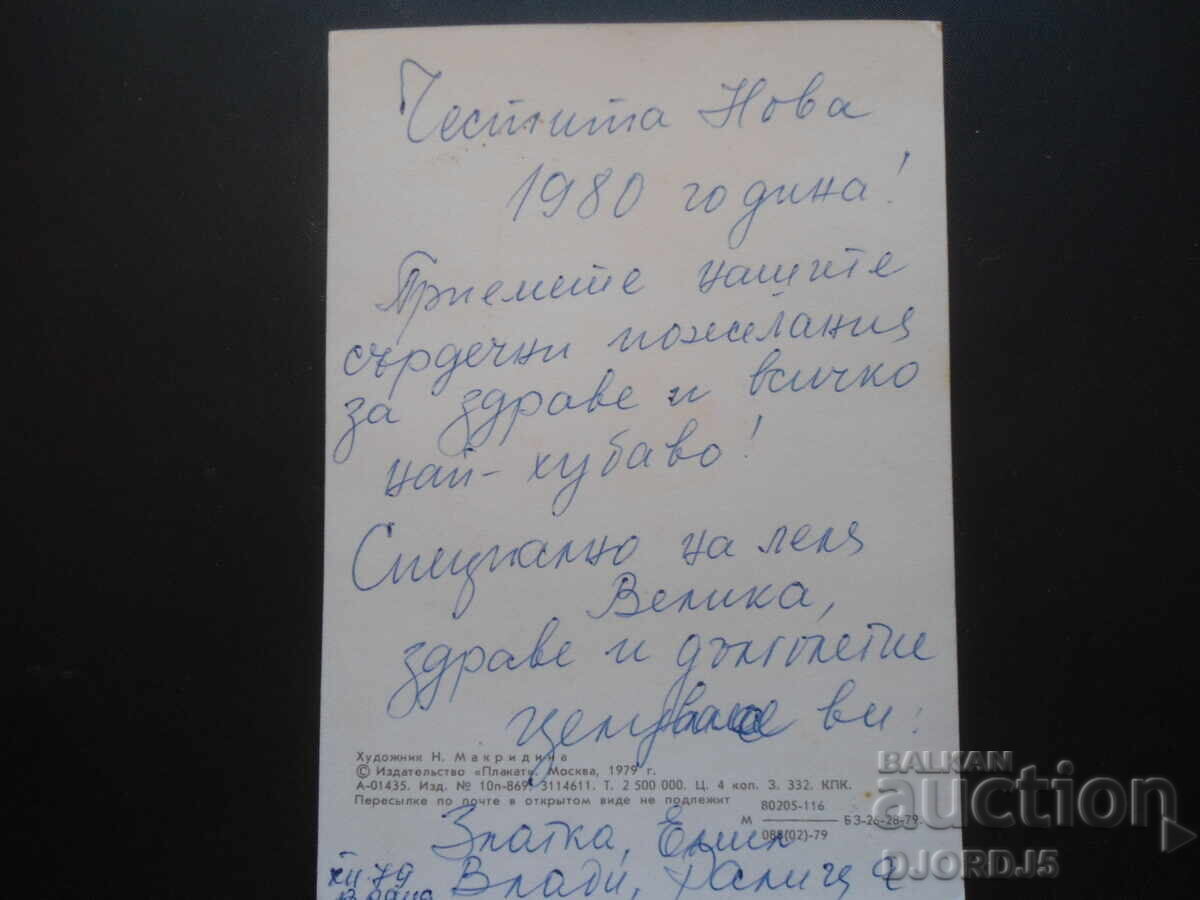 Честита Нова
1980 година!
Приемете нашите
сърдечни пожелания
за здраве и всичко
най-хубаво!
Специално на леля
Велика,
здраве и дълголетие
ви:
Художник Н. Макридина
© Издательство «Плакат». Москва, 1979 г.
А-01435. Изд. № 10п-869. 3114611. Т. 2 500 000. Ц. 4 коп. З. 332. КПК.
Пересылке по почте в открытом виде не подлежит
М 80205-116 БЗ-26-28-79.
088(02)-79
Златка, Емил
XII.79 Влади, Ралица
BALKAN
auction
DJORDJ5